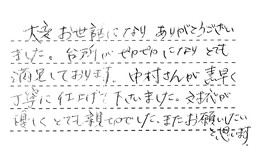 大変お世話になりありがとうござい
ました。台所がピカピカになりとても
満足しております。中村さんが素早く
丁寧に仕上げて下さいました。対応が
優しくとても親切でした。またお願いしたい
と思います。